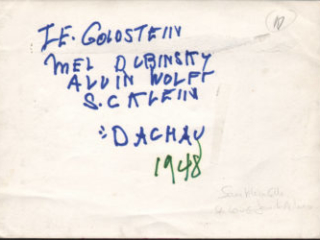 I.E. GOLDSTEIN
MEL DUBINSKY
ALVIN WOLFF
S.C KLEIN
DACHAU
1948